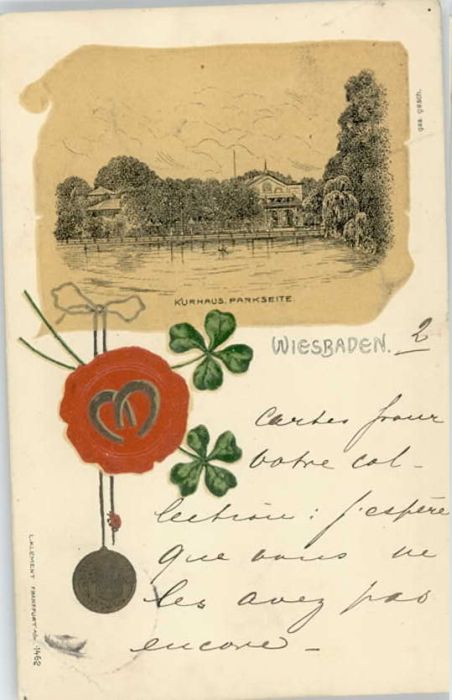 ges. gesch.
KURHAUS. PARKSEITE.
WIESBADEN. 2
cartes pour
votre col-
lection: j'espère
que vous ne
les avez pas
encore -
L. KLEMENT FRANKFURT A/M. 1462